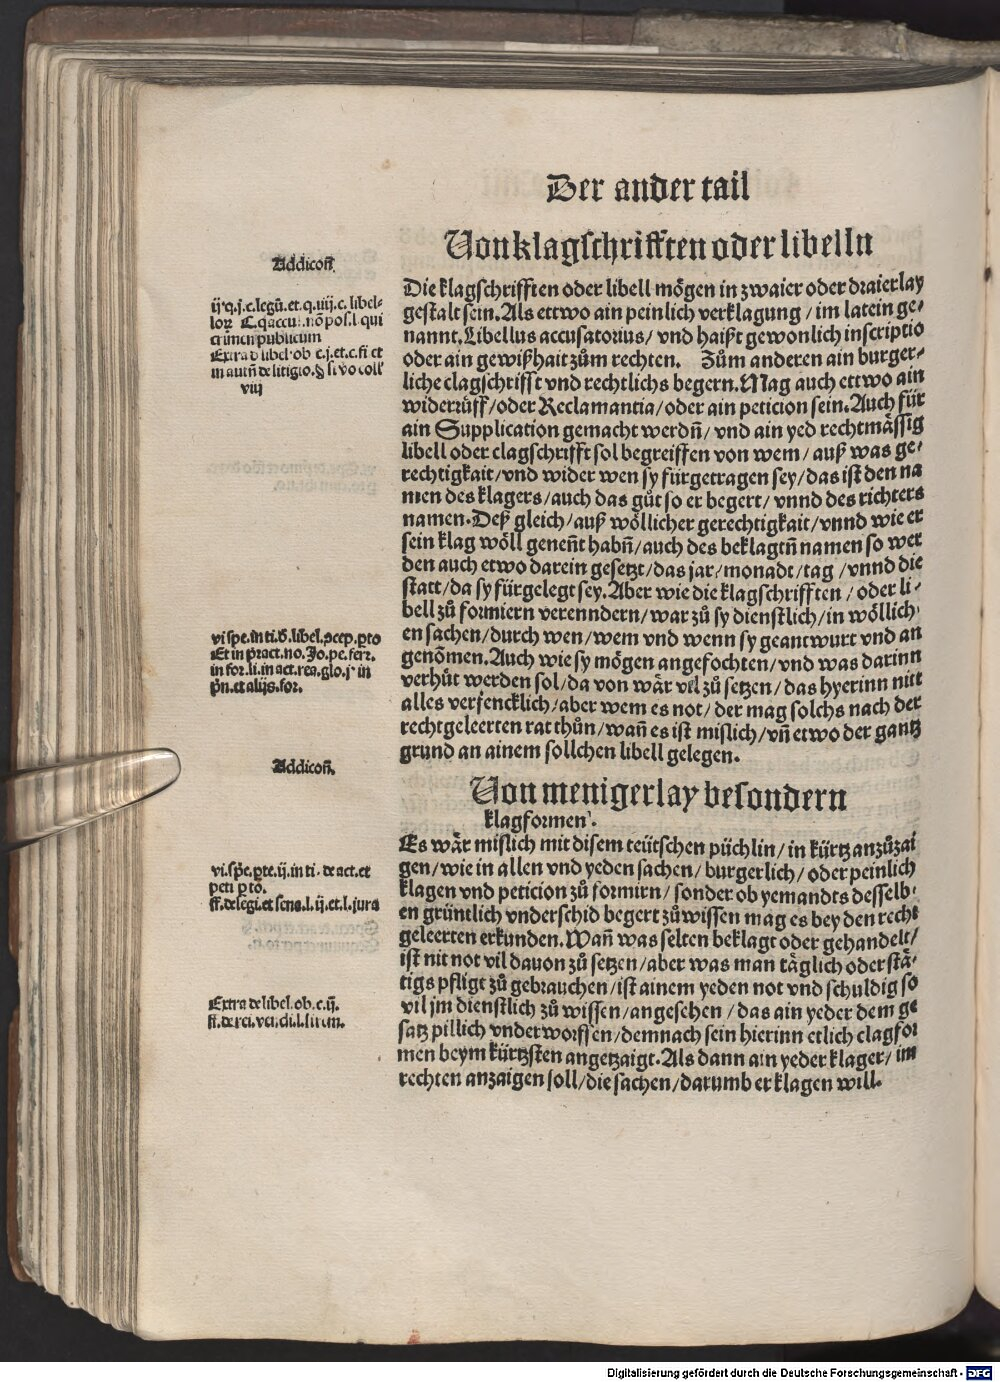 Der ander tail
Von klagschrifften oder libelln
Addicoñ.
ij. q. j. c. legũ. et. q. iiij. c. libel-
crimen publicum
Extra d libel. ob. c. j. et. c. fi et
viij
Die klagschrifften oder libell mögen in zwaier oder draierlay
gestalt sein. Als ettwo ain peinlich verklagung / im latein ge-
nannt. Libellus accusatorius / vnd haißt gewonlich inscriptio
oder ain gewißhait zům rechten. Zům anderen ain burger-
liche clagschrifft vnd rechtlichs begern. Mag auch ettwo ain
widerrůff / oder Reclamantia / oder ain peticion sein. Auch für
ain Supplication gemacht werdñ / vnd ain yed rechtmässig
libell oder clagschrifft sol begreiffen von wem / auß was ge-
rechtigkait / vnd wider wen sy fürgetragen sey / das ist den na
men des klagers / auch das gůt so er begert / vnnd des richters
namen. Deß gleich / auß wöllicher gerechtigkait / vnnd wie er
sein klag wöll geneñt habñ / auch des beklagtñ namen so wer
den auch etwo darein gesetzt / das jar / monadt / tag / vnnd die
statt / da sy fürgelegt sey. Aber wie die klagschrifften / oder li-
bell zů formiern verenndern / war zů sy dienstlich / in wöllich
en sachen / durch wen / wem vnd wenn sy geantwurt vnd an
genõmen. Auch wie sy mögen angefochten / vnd was darinn
verhůt werden sol / da von wär vil zů setzen / das hyerinn nitt
alles verfencklich / aber wem es not / der mag solchs nach der
rechtgeleerten rat thůn / wañ es ist mislich / vñ etwo der gantz
grund an ainem sollchen libell gelegen.
vi spe. in ti. d. libel. ꝯcep. ꝑto
Et in pract. no. Jo. pe. ferr.
in for. li. in act. rea. glo. j. in
pñ. et alijs. for.
Addicoñ.
Von menigerlay besondern
klagformen.
Es wär mislich mit disem teütschen püchlin / in kürtz anzůzai
gen / wie in allen vnd yeden sachen / burgerlich / oder peinlich
klagen vnd peticion zů formirn / sonder ob yemandts desselb-
en grüntlich vnderschid begert zů wissen mag es bey den recht
geleerten erkunden. Wañ was selten beklagt oder gehandelt /
ist nit not vil dauon zů setzen / aber was man täglich oder stä-
tigs pfligt zů gebrauchen / ist ainem yeden not vnd schuldig so
vil jm dienstlich zů wissen / angesehen / das ain yeder dem ge
satz pillich vnderworffen / demnach sein hierinn etlich clagfor
men beym kürtzsten angetzaigt. Als dann ain yeder klager / im
rechten anzaigen soll / die sachen / darumb er klagen will.
vi. spe. ꝑte. ij. in ti. de act. et
peti ꝑto.
ff. de legi. et sena. l. ij. et. l. jura
Extra de libel. ob. c. ij.
ff. de rei. vendi. l. si rem.
Digitalisierung gefördert durch die Deutsche Forschungsgemeinschaft - DFG